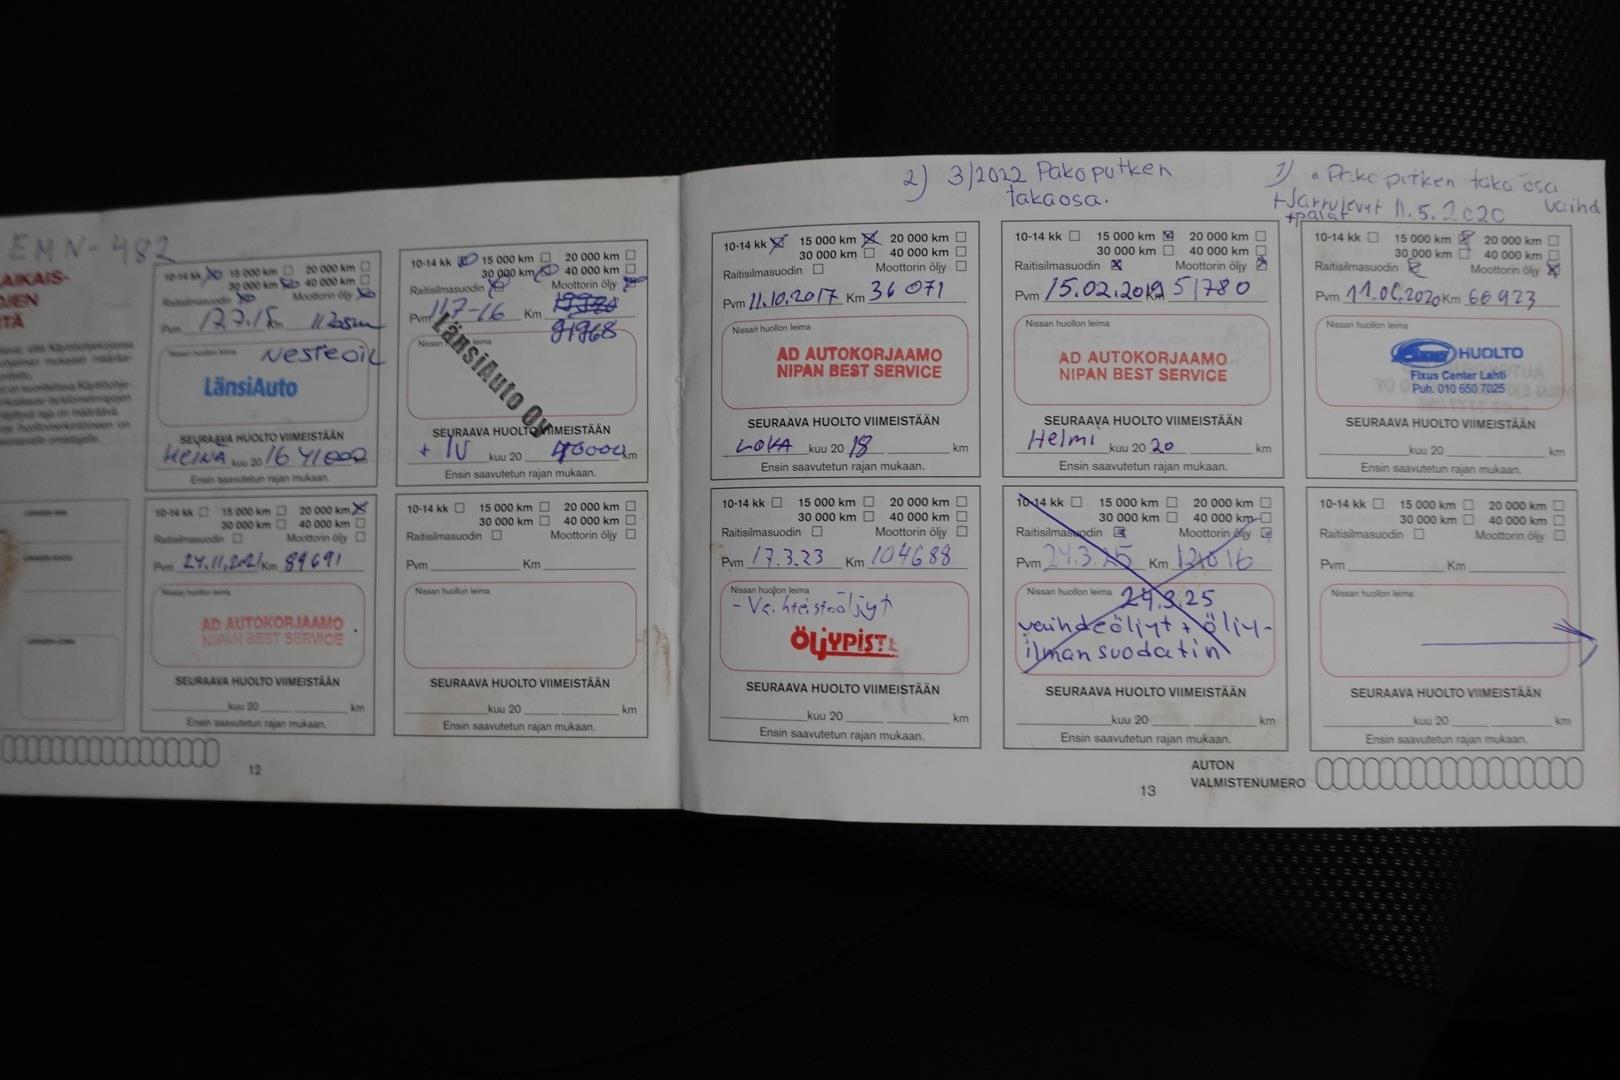 EMN-482
2) 3/2022 Pakoputken
takaosa.
1) • Pako putken taka osa
vaihd
+Jarrulevyt 11.5.2020
+palat
AIKAIS-
JEN
TÄ
10-14 kk 15 000 km 20 000 km
30 000 km 40 000 km
Raitisilmasuodin Moottorin öljy
Pvm Km
Nissan huollon leima
Nesteoil
LänsiAuto
SEURAAVA HUOLTO VIIMEISTÄÄN
HEINÄ kuu 20 16 41000 km
Ensin saavutetun rajan mukaan.
10-14 kk 15 000 km 20 000 km
30 000 km 40 000 km
Raitisilmasuodin Moottorin öljy
Pvm 11.7-16 Km
Nissan huollon leima
LänsiAuto Oy
SEURAAVA HUOLTO VIIMEISTÄÄN
kuu 20 km
Ensin saavutetun rajan mukaan.
10-14 kk 15 000 km 20 000 km
30 000 km 40 000 km
Raitisilmasuodin Moottorin öljy
Pvm 11.10.2017 Km 36 071
Nissan huollon leima
AD AUTOKORJAAMO
NIPAN BEST SERVICE
SEURAAVA HUOLTO VIIMEISTÄÄN
LOKA kuu 20 18 km
Ensin saavutetun rajan mukaan.
10-14 kk 15 000 km 20 000 km
30 000 km 40 000 km
Raitisilmasuodin Moottorin öljy
Pvm 15.02.2019 Km 51780
Nissan huollon leima
AD AUTOKORJAAMO
NIPAN BEST SERVICE
SEURAAVA HUOLTO VIIMEISTÄÄN
Helmi kuu 20 20 km
Ensin saavutetun rajan mukaan.
10-14 kk 15 000 km 20 000 km
30 000 km 40 000 km
Raitisilmasuodin Moottorin öljy
Pvm Km 66923
Nissan huollon leima
HUOLTO
Fixus Center Lahti
Puh. 010 650 7025
SEURAAVA HUOLTO VIIMEISTÄÄN
kuu 20 km
Ensin saavutetun rajan mukaan.
10-14 kk 15 000 km 20 000 km
30 000 km 40 000 km
Raitisilmasuodin Moottorin öljy
Pvm 24.11.2021 Km 89691
Nissan huollon leima
AD AUTOKORJAAMO
NIPAN BEST SERVICE
SEURAAVA HUOLTO VIIMEISTÄÄN
kuu 20 km
Ensin saavutetun rajan mukaan.
10-14 kk 15 000 km 20 000 km
30 000 km 40 000 km
Raitisilmasuodin Moottorin öljy
Pvm Km
Nissan huollon leima
SEURAAVA HUOLTO VIIMEISTÄÄN
kuu 20 km
Ensin saavutetun rajan mukaan.
10-14 kk 15 000 km 20 000 km
30 000 km 40 000 km
Raitisilmasuodin Moottorin öljy
Pvm 17.3.23 Km 104688
Nissan huollon leima
- Vaihteistoöljyt
ÖLJYPISTE
SEURAAVA HUOLTO VIIMEISTÄÄN
kuu 20 km
Ensin saavutetun rajan mukaan.
10-14 kk 15 000 km 20 000 km
30 000 km 40 000 km
Raitisilmasuodin Moottorin öljy
Pvm 24.3.25 Km
Nissan huollon leima 24.3.25
vaihdeöljyt + öljy-
ilmansuodatin
SEURAAVA HUOLTO VIIMEISTÄÄN
kuu 20 km
Ensin saavutetun rajan mukaan.
10-14 kk 15 000 km 20 000 km
30 000 km 40 000 km
Raitisilmasuodin Moottorin öljy
Pvm Km
Nissan huollon leima
SEURAAVA HUOLTO VIIMEISTÄÄN
kuu 20 km
Ensin saavutetun rajan mukaan.
12
13
AUTON
VALMISTENUMERO